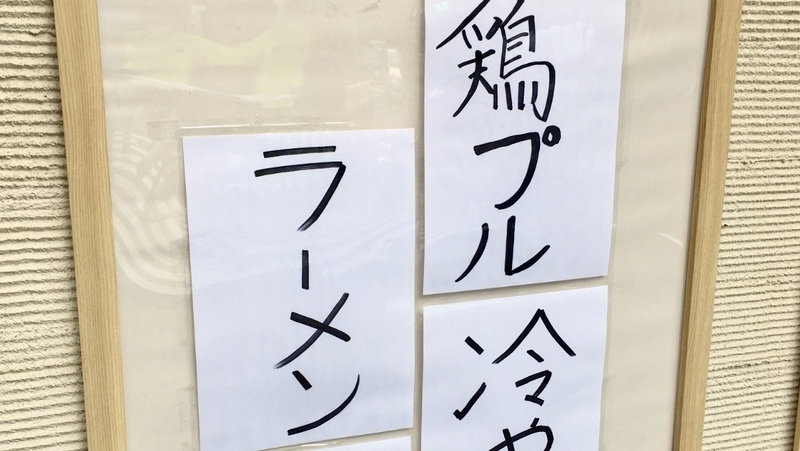 鶏プル
冷や
ラーメン